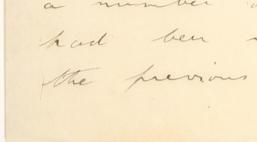 a number
had been
the previous